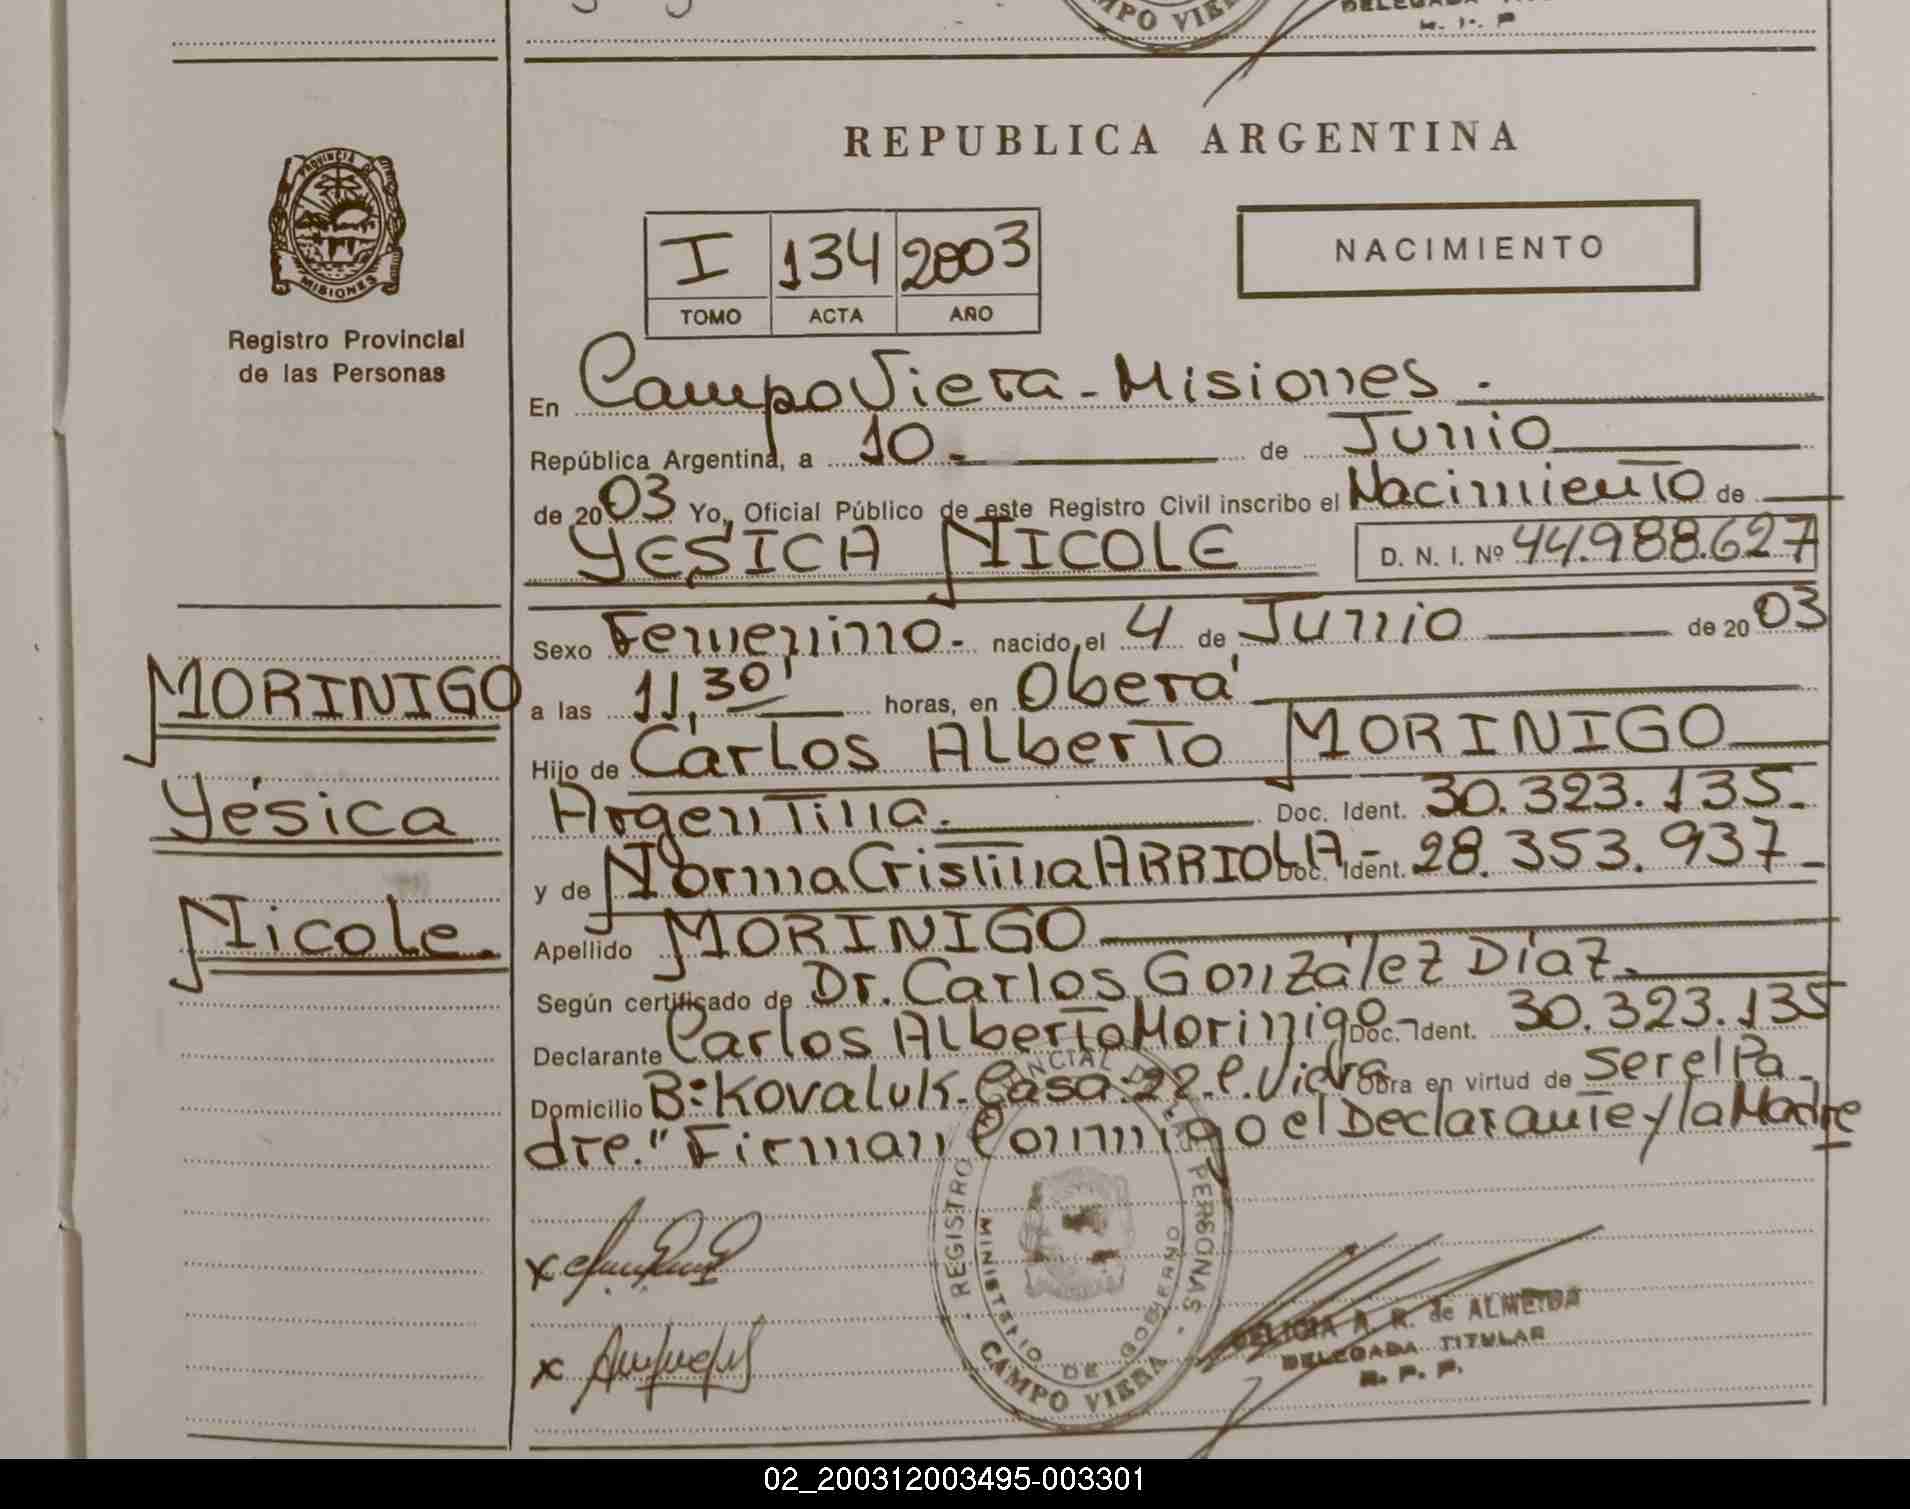 CAMPO VIERA
REPUBLICA ARGENTINA
PROVINCIA DE
MISIONES
Registro Provincial
de las Personas
I 134 2003
TOMO ACTA AÑO
NACIMIENTO
En Campo Viera - Misiones.
República Argentina, a 10. de Junio
de 2003 Yo, Oficial Público de este Registro Civil inscribo el Nacimiento de
YESICA NICOLE D. N. I. Nº 44.988.627
Sexo Femenino.- nacido, el 4 de Junio de 2003
a las 11,30' horas, en Oberá
Hijo de Carlos Alberto MORINIGO
Argentina. Doc. Ident. 30.323.135.
y de Norma Cristina ARRIOLA - Doc. Ident. 28.353.937 -
Apellido MORINIGO
Según certificado de Dr. Carlos González Díaz.
Declarante Carlos Alberto Morinigo - Doc. Ident. 30.323.135
Domicilio B: Kovaluk. Casa: 22. C. Viera Obra en virtud de Ser el Pa-
dre." Firman Conmigo el Declarante y la Madre
MORINIGO
Yésica
Nicole.
x
x
REGISTRO PROVINCIAL DE LAS PERSONAS -
MINISTERIO DE GOBIERNO
CAMPO VIERA
DELICIA A. R. de ALMEIDA
DELEGADA TITULAR
R. P. P.
02_200312003495-003301